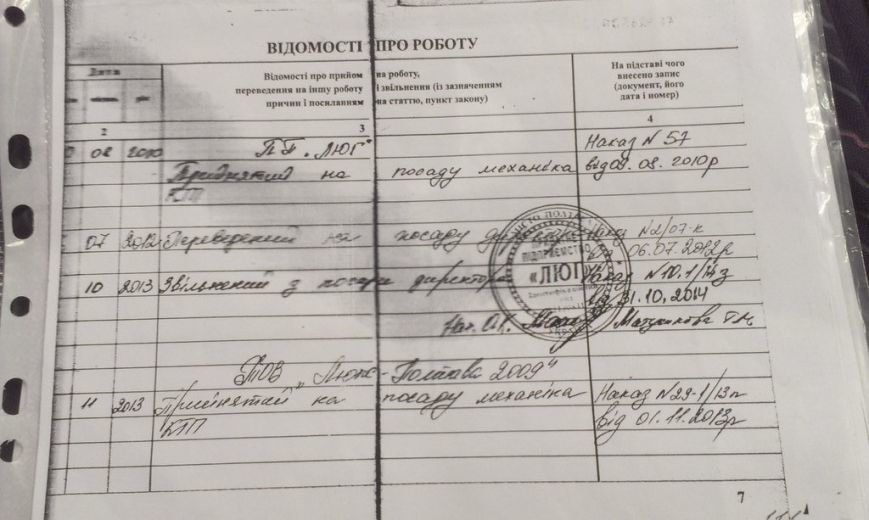 ВІДОМОСТІ ПРО РОБОТУ
Дата
Відомості про прийом на роботу,
переведення на іншу роботу і звільнення (із зазначенням
причин і посиланням на статтю, пункт закону)
На підставі чого
внесено запис
(документ, його
дата і номер)
2 3 4
08 2010 ПП "ЛЮГ" Наказ №57
Прийнятий на посаду механіка від 09.08.2010р
КТП
07 2012 Переведений на посаду №2/07-к
06.07.2012р
10 2013 Звільнений з посади директора Наказ №10.1/
від 31.10.2014
Нач. ОК
ПІДПРИЄМСТВО
«ЛЮГ»
ТОВ "Люкс-Полтава 2009"
11 2013 Прийнятий на посаду механіка Наказ №29-1/13п
КТП від 01.11.2013р
7